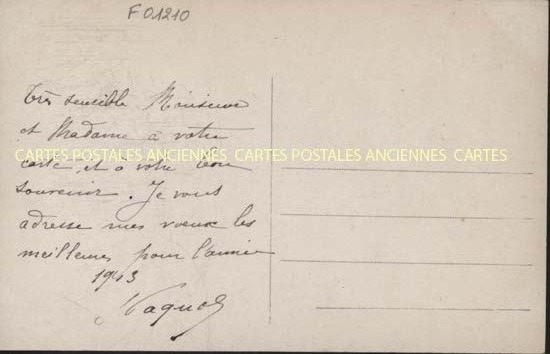 F 01210
très sensible Monsieur
et Madame à votre
carte, et à votre bon
souvenir. Je vous
adresse mes vœux les
meilleurs pour l'année
1913
CARTES POSTALES ANCIENNES CARTES POSTALES ANCIENNES CARTES